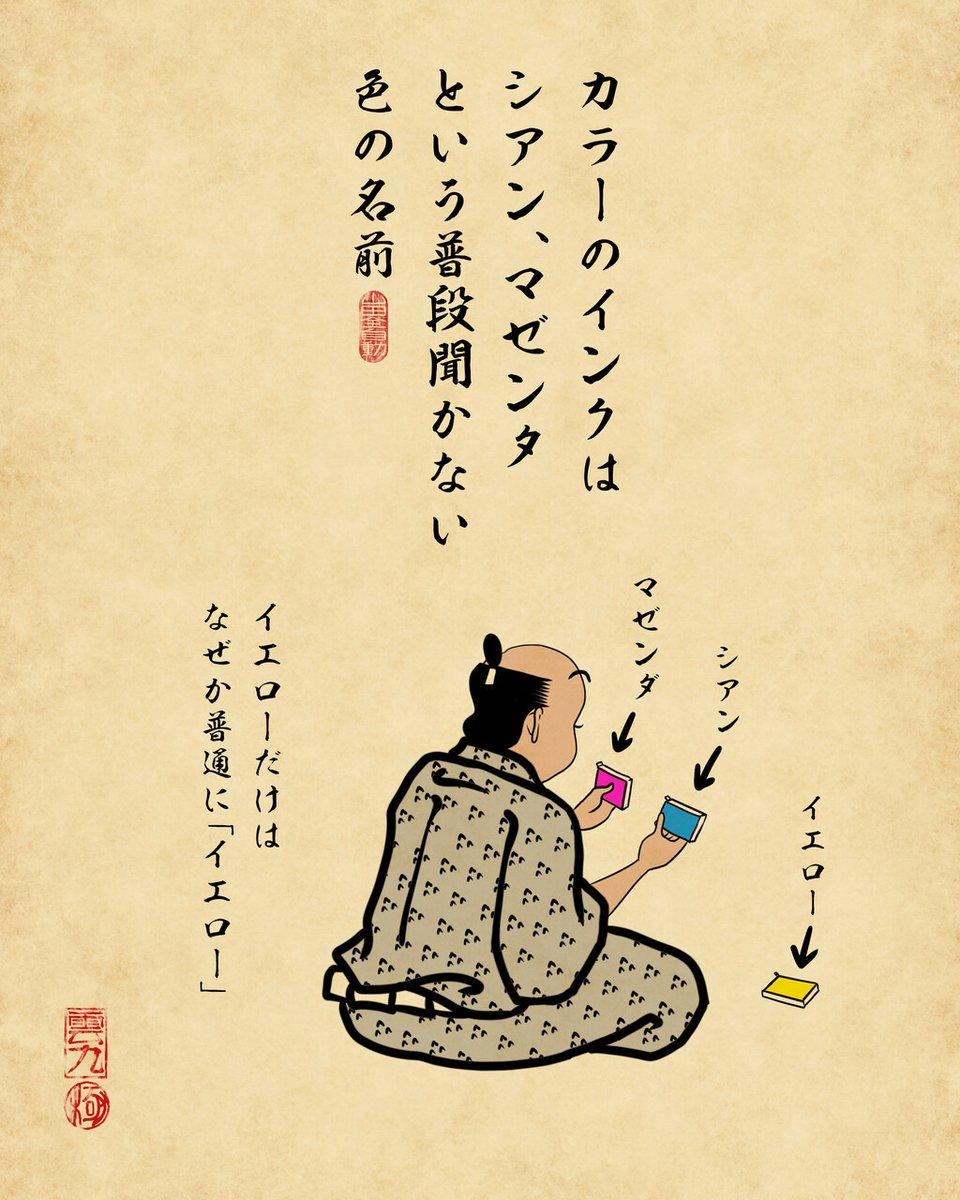 カラーのインクは
シアン、マゼンタ
という普段聞かない
色の名前
マゼンダ
シアン
イエロー
イエローだけは
なぜか普通に「イエロー」